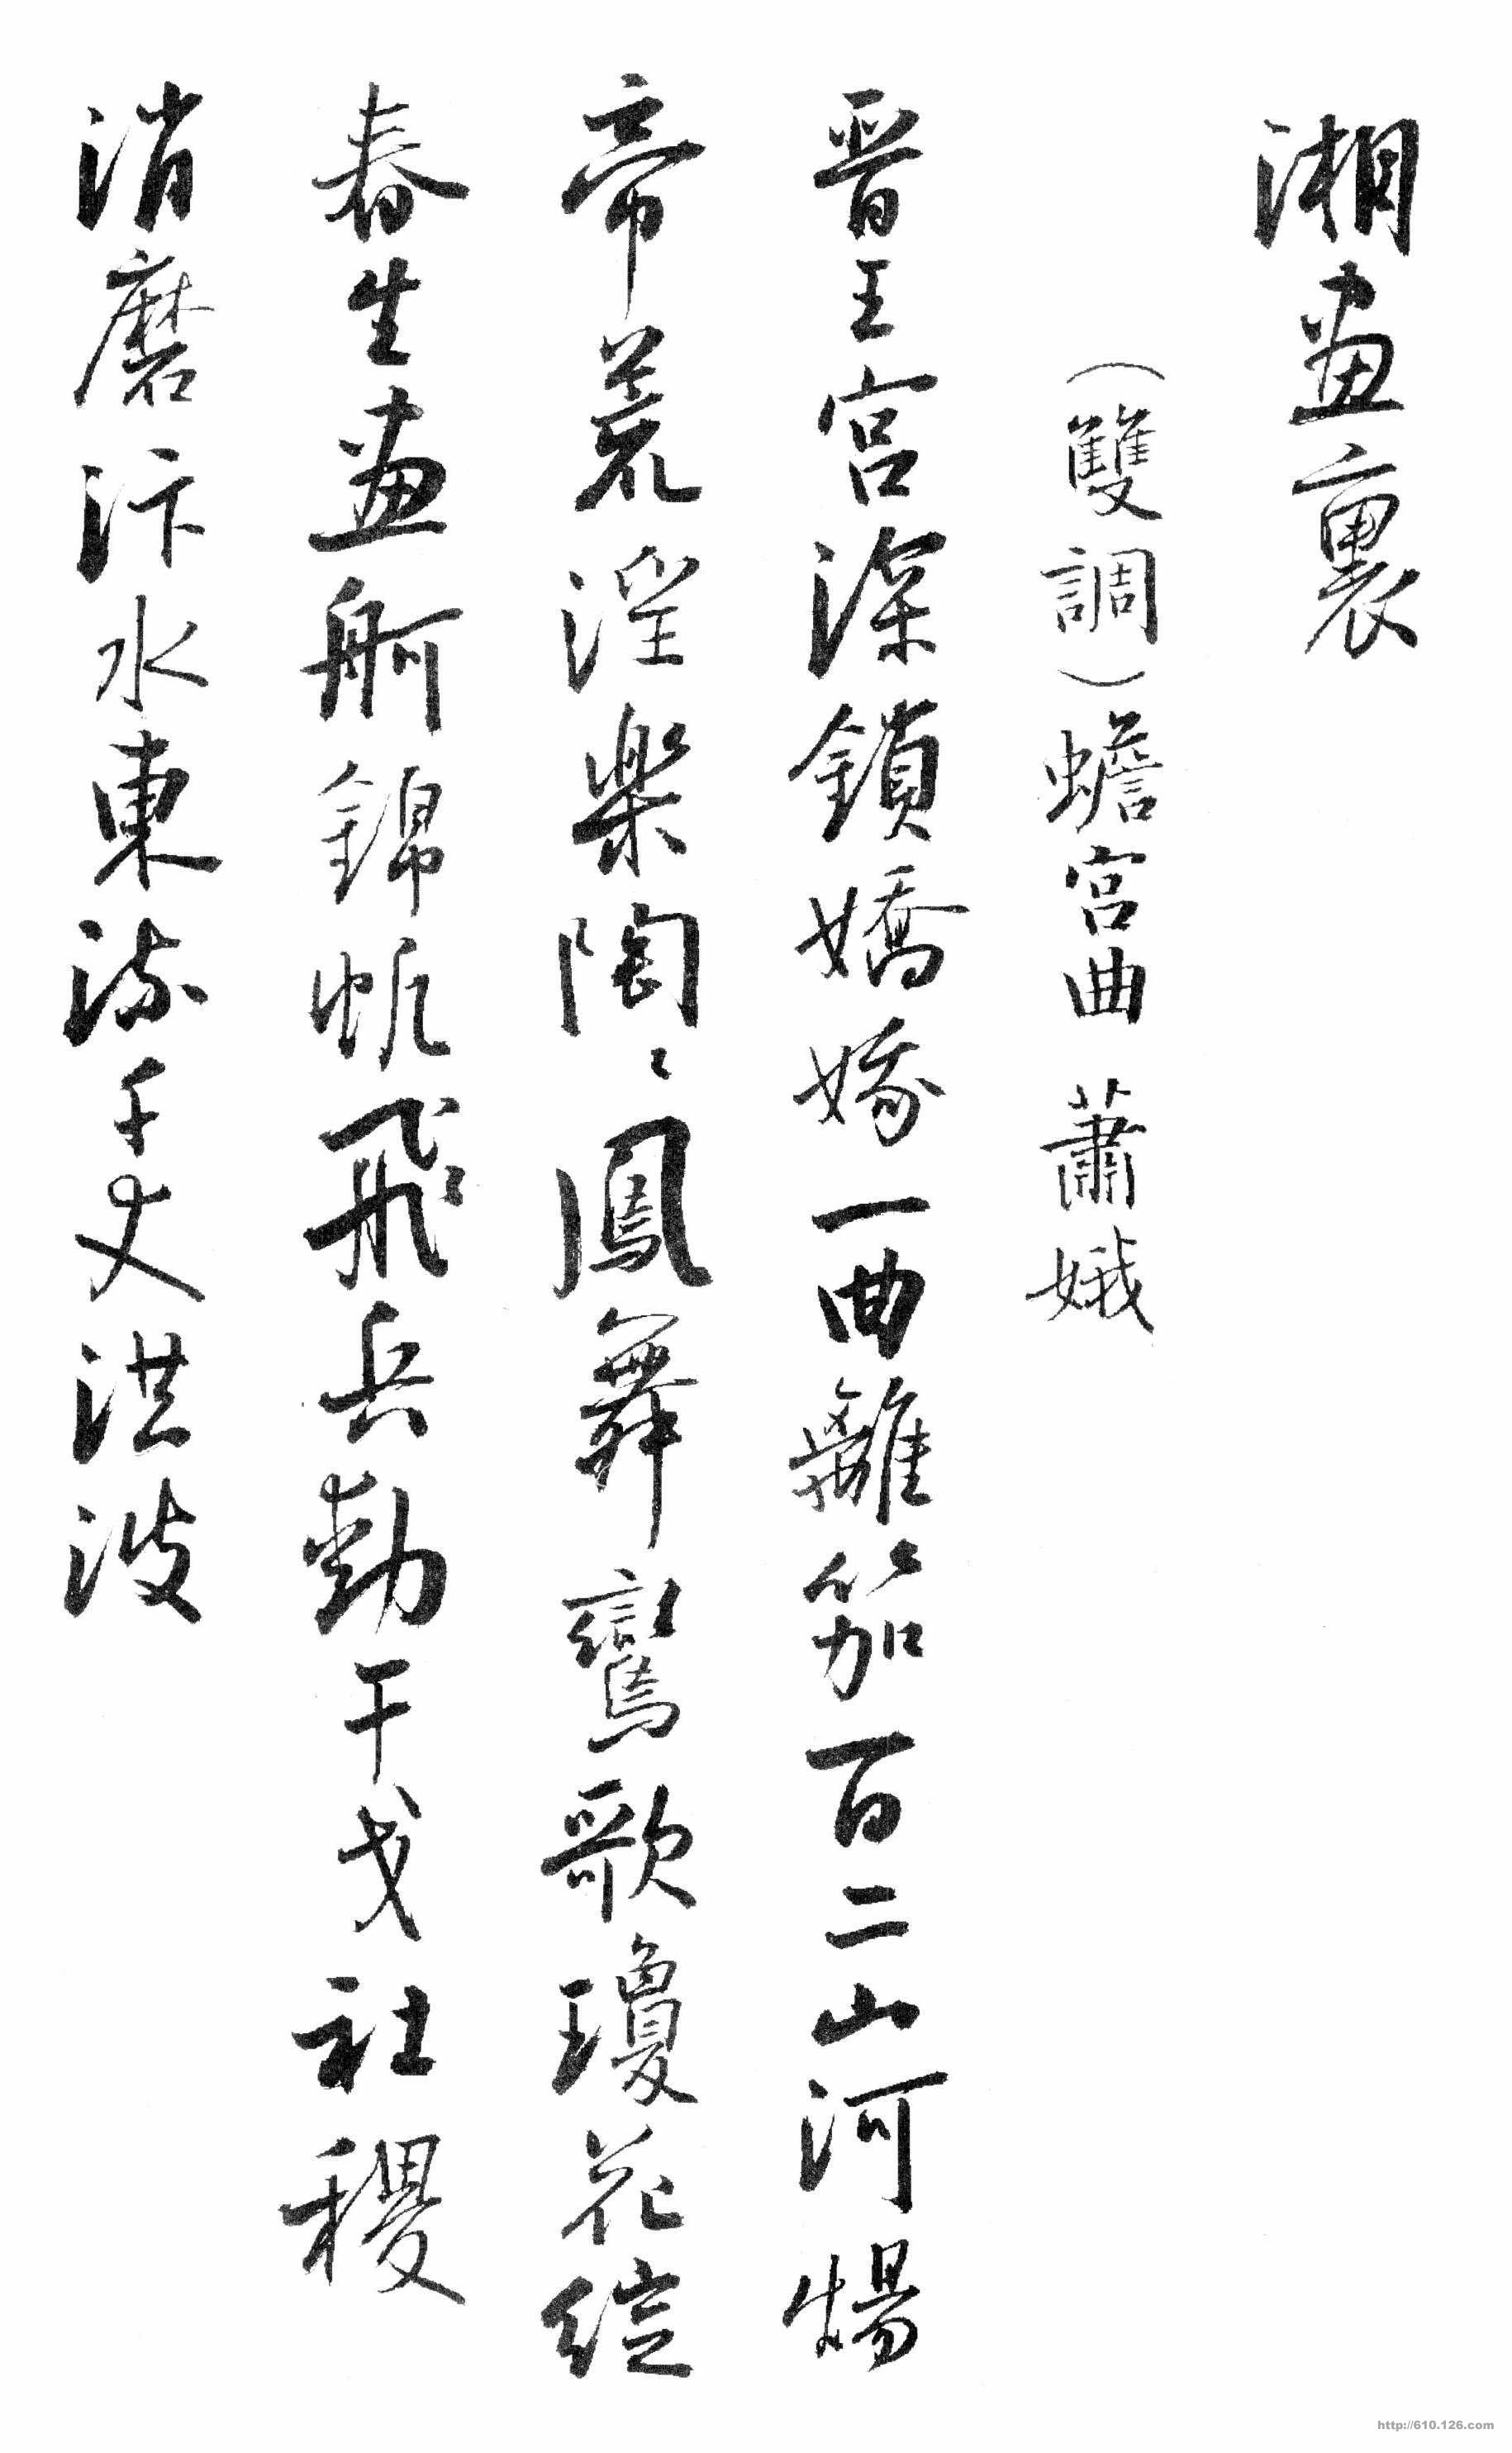 湘畫裏
（雙調）蟾宮曲 蕭娥
晋王宮深鎖嬌娥一曲離笳百二山河煬
帝荒淫樂陶〻鳳舞鸞歌瓊花綻
春生畫舸錦帆飛兵動干戈社稷
消磨汴水東流千丈洪波
http://610.126.com